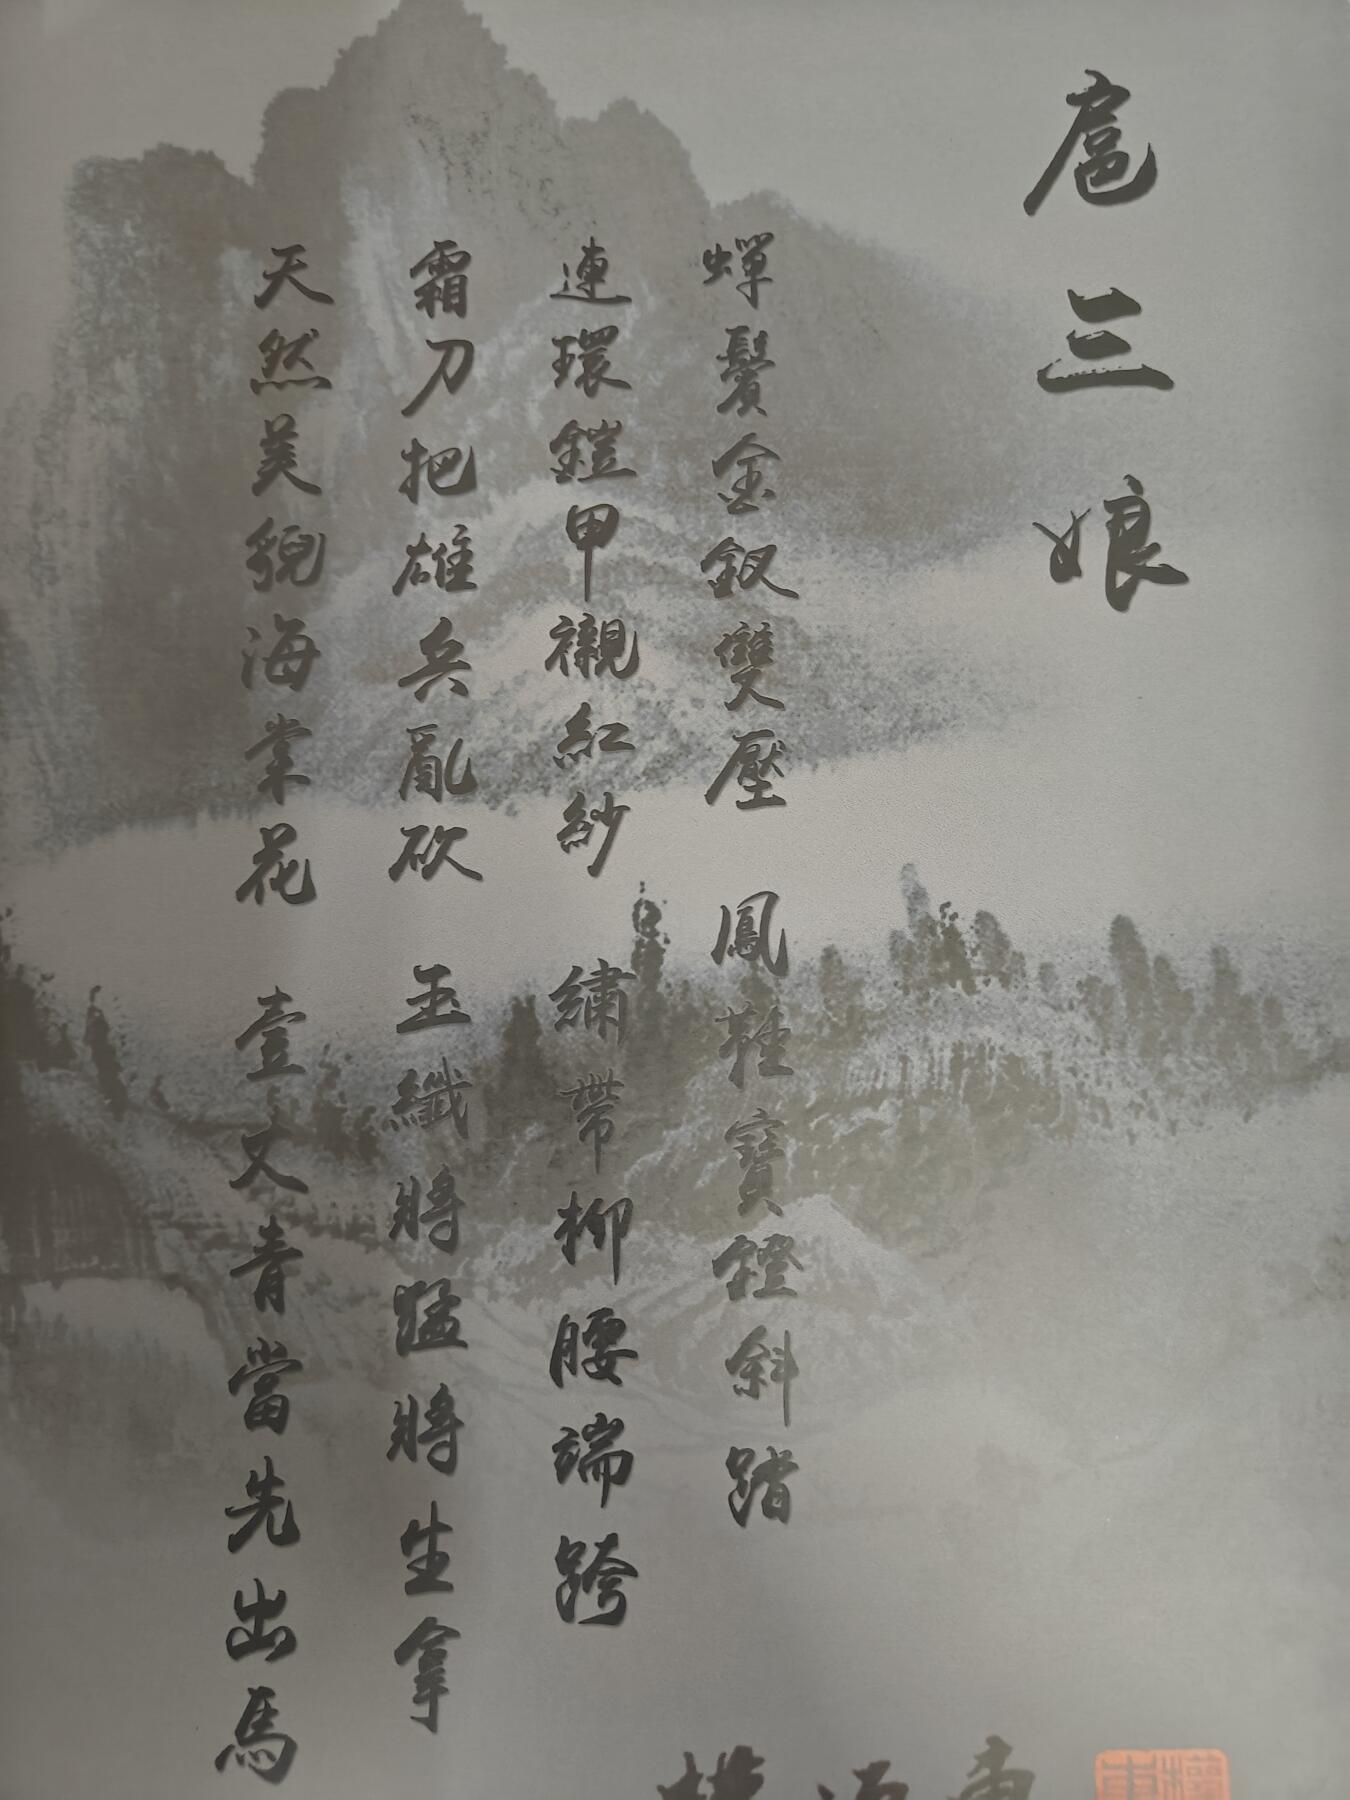 扈三娘
蟬鬢金釵雙壓 鳳鞋寶鐙斜踏
連環鎧甲襯紅紗 繡帶柳腰端跨
霜刀把雄兵亂砍 玉纖將猛將生拿
天然美貌海棠花 壹丈青當先出馬